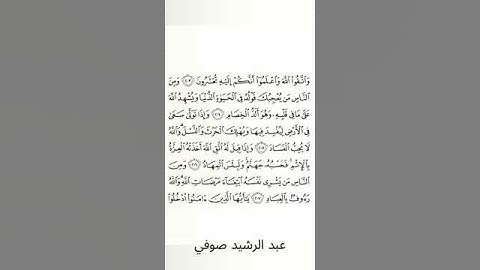 وَاتَّقُوا۟ اللَّهَ وَاعْلَمُوٓا۟ أَنَّكُمْ إِلَيْهِ تُحْشَرُونَ وَمِنَ
النَّاسِ مَن يُعْجِبُكَ قَوْلُهُۥ فِى الْحَيَوٰةِ الدُّنْيَا وَيُشْهِدُ اللَّهَ
عَلَىٰ مَا فِى قَلْبِهِۦ وَهُوَ أَلَدُّ الْخِصَامِ وَإِذَا تَوَلَّىٰ سَعَىٰ
فِى الْأَرْضِ لِيُفْسِدَ فِيهَا وَيُهْلِكَ الْحَرْثَ وَالنَّسْلَ وَاللَّهُ
لَا يُحِبُّ الْفَسَادَ وَإِذَا قِيلَ لَهُ اتَّقِ اللَّهَ أَخَذَتْهُ الْعِزَّةُ
بِالْإِثْمِ فَحَسْبُهُۥ جَهَنَّمُ وَلَبِئْسَ الْمِهَادُ وَمِنَ
النَّاسِ مَن يَشْرِى نَفْسَهُ ابْتِغَآءَ مَرْضَاتِ اللَّهِ وَاللَّهُ
رَءُوفٌۢ بِالْعِبَادِ يَٰٓأَيُّهَا الَّذِينَ ءَامَنُوا۟ ادْخُلُوا۟
عبد الرشيد صوفي